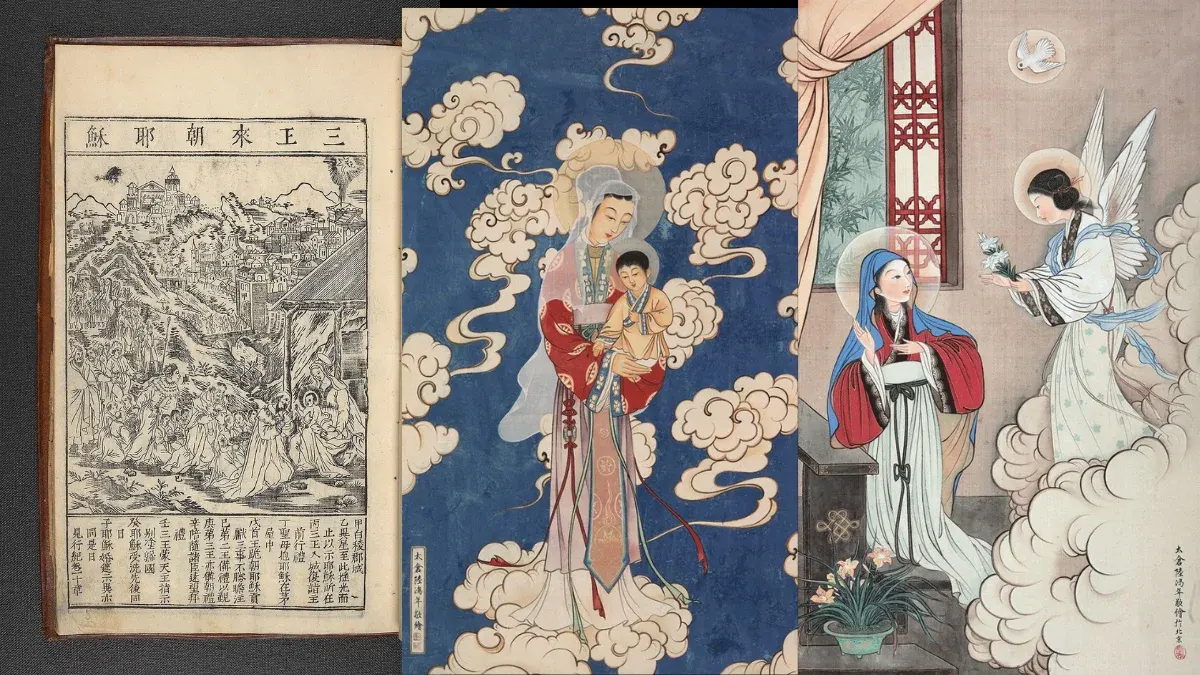 三王來朝耶穌
甲白稜郡城
乙異星至此熄光而
止以示耶穌所在
丙三王入城
前行禮
丁聖母抱耶穌在茅
屋中
戊首王跪朝耶穌貢
獻三事不勝瞻注
己第二王備禮以覲
庚第三王亦備朝禮
辛陪隨諸臣望拜
禮
壬三王蒙天主指示
別途歸國
癸耶穌受洗先後同
日
子耶穌婚筵示異亦
同是日
見行紀十章
太倉陸鴻年敬繪
太倉陸鴻年敬繪於北京